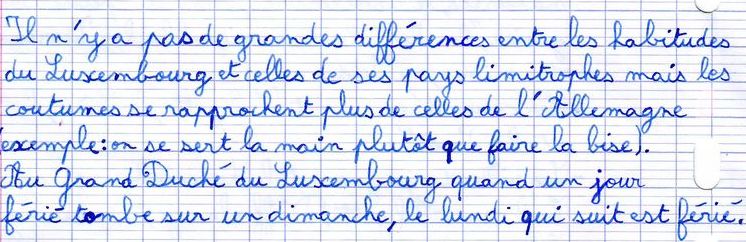 Il n'y a pas de grandes différences entre les habitudes
du Luxembourg et celles de ses pays limitrophes mais les
coutumes se rapprochent plus de celles de l'Allemagne
(exemple: on se sert la main plutôt que faire la bise).
Au Grand Duché du Luxembourg quand un jour
férié tombe sur un dimanche, le lundi qui suit est férié.